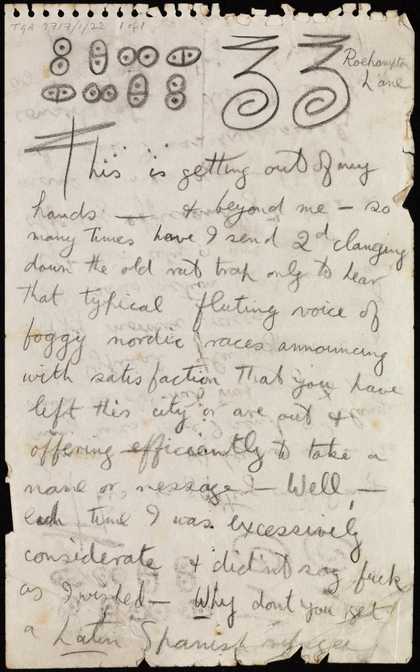 TGA 9717/1/22 1 of 1
33 Roehampton
Lane
This is getting out of my
hands — & beyond me — so
many times have I send 2d clanging
down the old rat trap only to hear
that typical fluting voice of
foggy nordic races announcing
with satisfaction that you have
left this city or are out &
offering efficiently to take a
name or message — Well —
each time I was excessively
considerate & didn't say fuck
as I wished — Why dont you get
a Latin Spanish